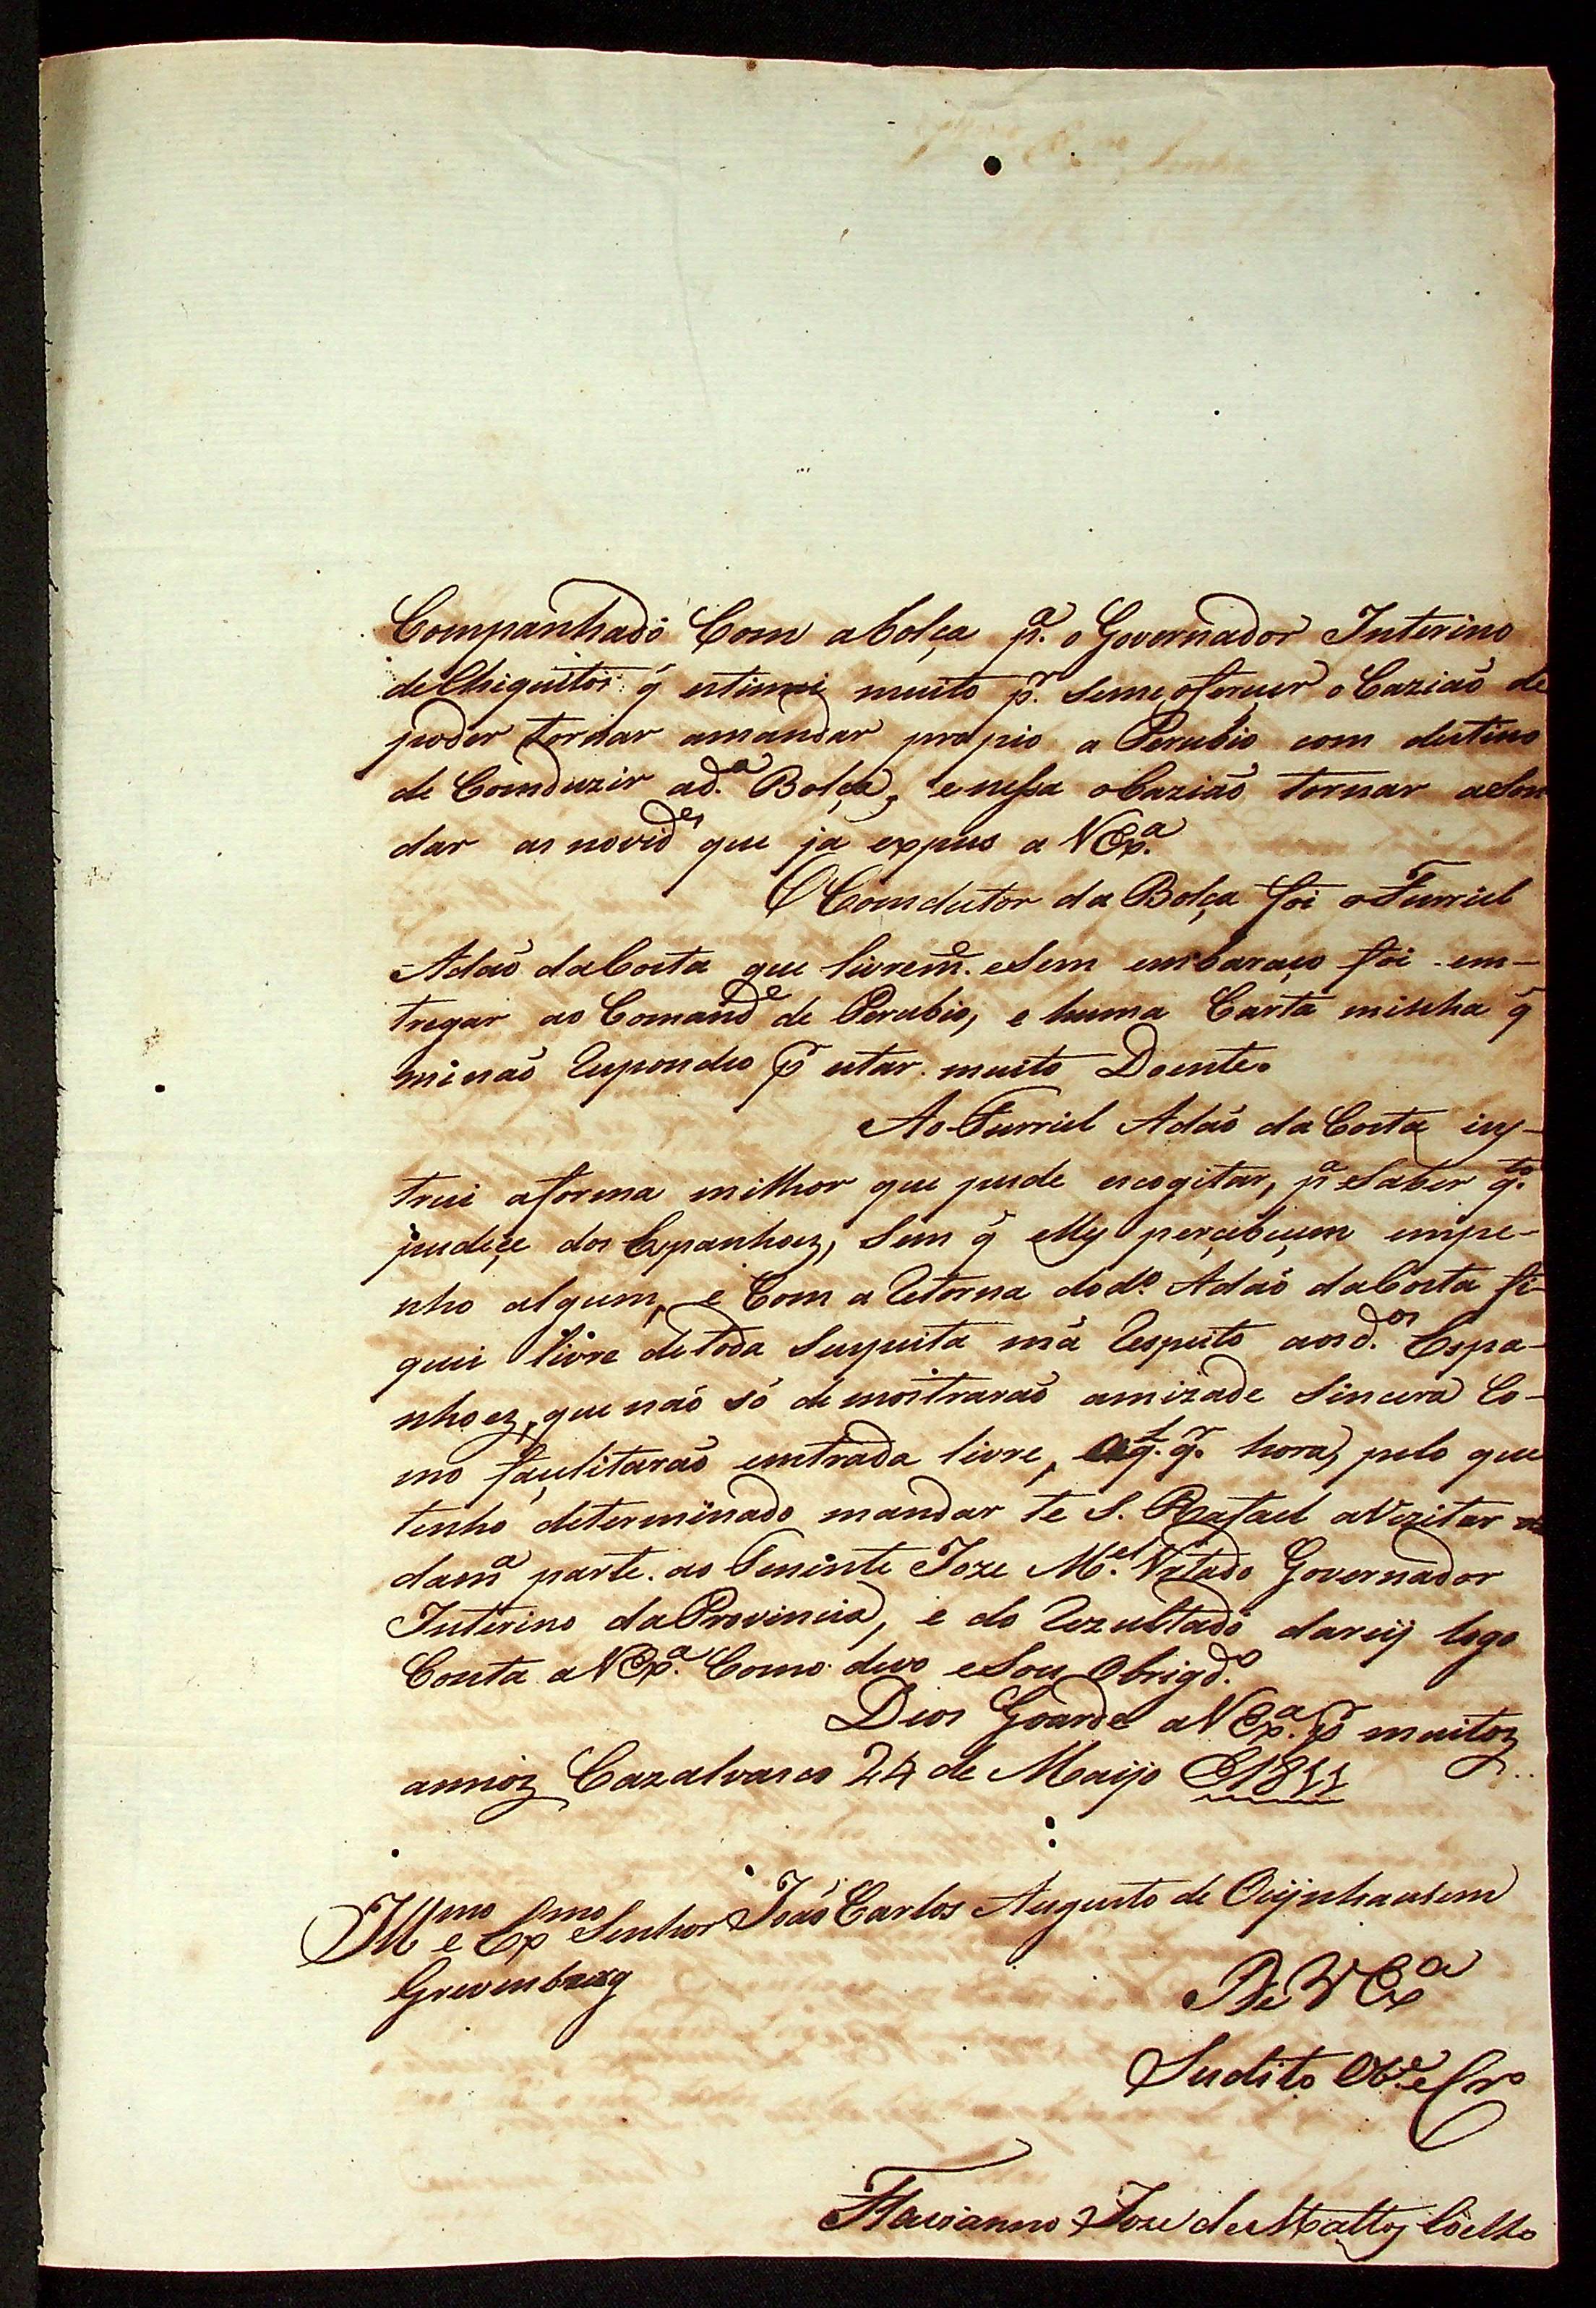 Companhado Com abolça p.ª o Governador Interino
deChiquitos q̃ estimei muito p.r seme,ofereçer oCaziaõ de
poder tornar amandar propio a Perubio com destino
de Comduzir ad.ª Bolça, enessa obaziaõ tornar aSon
dar as novid.es que ja expus a VEx.ª
O Comdutor da Bolça foi oFurriel
Adaõ daCosta que livrem.e eSem embaraço foi em-
tregar ao Comand.e de Perubio, e huma Carta minha q̃
minaõ Respondeo p.r estar muito Doente.
Ao Furriel Adaõ da Costa ins-
trui aforma milhor que pude escogitar, p.ª Saber q.to
pudeçe dos Espanhoes, Sem q̃ elles perçebeçem empe-
nho algum, e Com a Retorna dod.º Adaõ daCosta fi-
quei livre detoda Suspeita má Respeito aosd.os Espa-
nhoes, que naõ só demostraraõ amizade Sincera Co-
mo façelitaraõ emtrada livre, aq.l q.r hora, pelo que
tenho determinado mandar te S. Rafael aVizitar
dam.ª parte ao Teninte Joze M.el Vetado Governador
Interino daProvincia, e do Rezultado dareij logo
Conta aVEx.ª Como devo eSou Obrigd.º
Dios Goarde aVEx.ª p.r muitos
annos Cazalvasco 24 de Maijo de 1811
Ill.mo e Ex.mo Senhor Joaõ Carlos Augusto de Oeijnhausem
Grevenberg
De VEx.ª
Sudito Ob.e e Cr.º
Flavianno Joze de Mattos Coelho